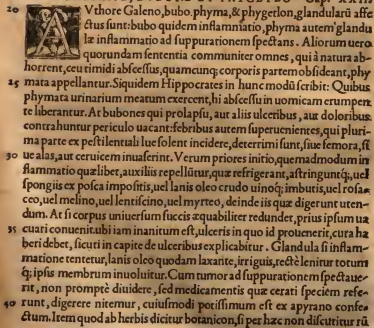 20 AVthore Galeno, bubo, phyma, & phygerlon, glandularũ affe
ctus sunt: bubo quidem inflammatio, phyma autem glandu
læ inflammatio ad suppurationem spectans. Aliorum uero
quorundam sententia communiter omnes, qui à natura ab-
horrent, ceu timidi abscessus, quamcunq; corporis partem obsideant, phy
25 mata appellantur. Siquidem Hippocrates in hunc modũ scribit: Quibus
phymata urinarium meatum exercent, hi abscessu in uomicam erumpen
te liberantur. At bubones qui prolapsu, aut aliis ulceribus, aut doloribus
contrahuntur periculo uacant: febribus autem superuenientes, qui pluri-
ma parte ex pestilentiali lue solent incidere, deterrimi sunt, siue femora, si
30 ue alas, aut ceruicem inuaserint. Verum priores initio, quemadmodum in
flammatio quælibet, auxiliis repellũtur, quæ refrigerant, astringuntq;, uel
spongiis ex posca impositis, uel lanis oleo crudo uinoq; imbutis, uel rosa-
ceo, uel melino, uel lentiscino, uel myrteo, deinde iis quæ digerunt uten-
dum. At si corpus uniuersum succis æquabiliter redundet, prius ipsum ua
35 cuari conuenit. ubi iam inanitum est, ulceris in quo id prouenerit, cura ha
beri debet, sicuti in capite de ulceribus explicabitur. Glandula si inflam-
matione tentetur, lanis oleo quodam laxante, irriguis, rectè lenitur totum
q; ipsis membrum inuoluitur. Cum tumor ad suppurationem spectaue-
rit, non promptè diuidere, sed medicamentis quæ cerati speciem refe-
40 runt, digerere nitemur, cuiusmodi potissimum est ex apyrano confe-
ctum. Item quod ab herbis dicitur botanicon, si per hæc non discutitur rũ